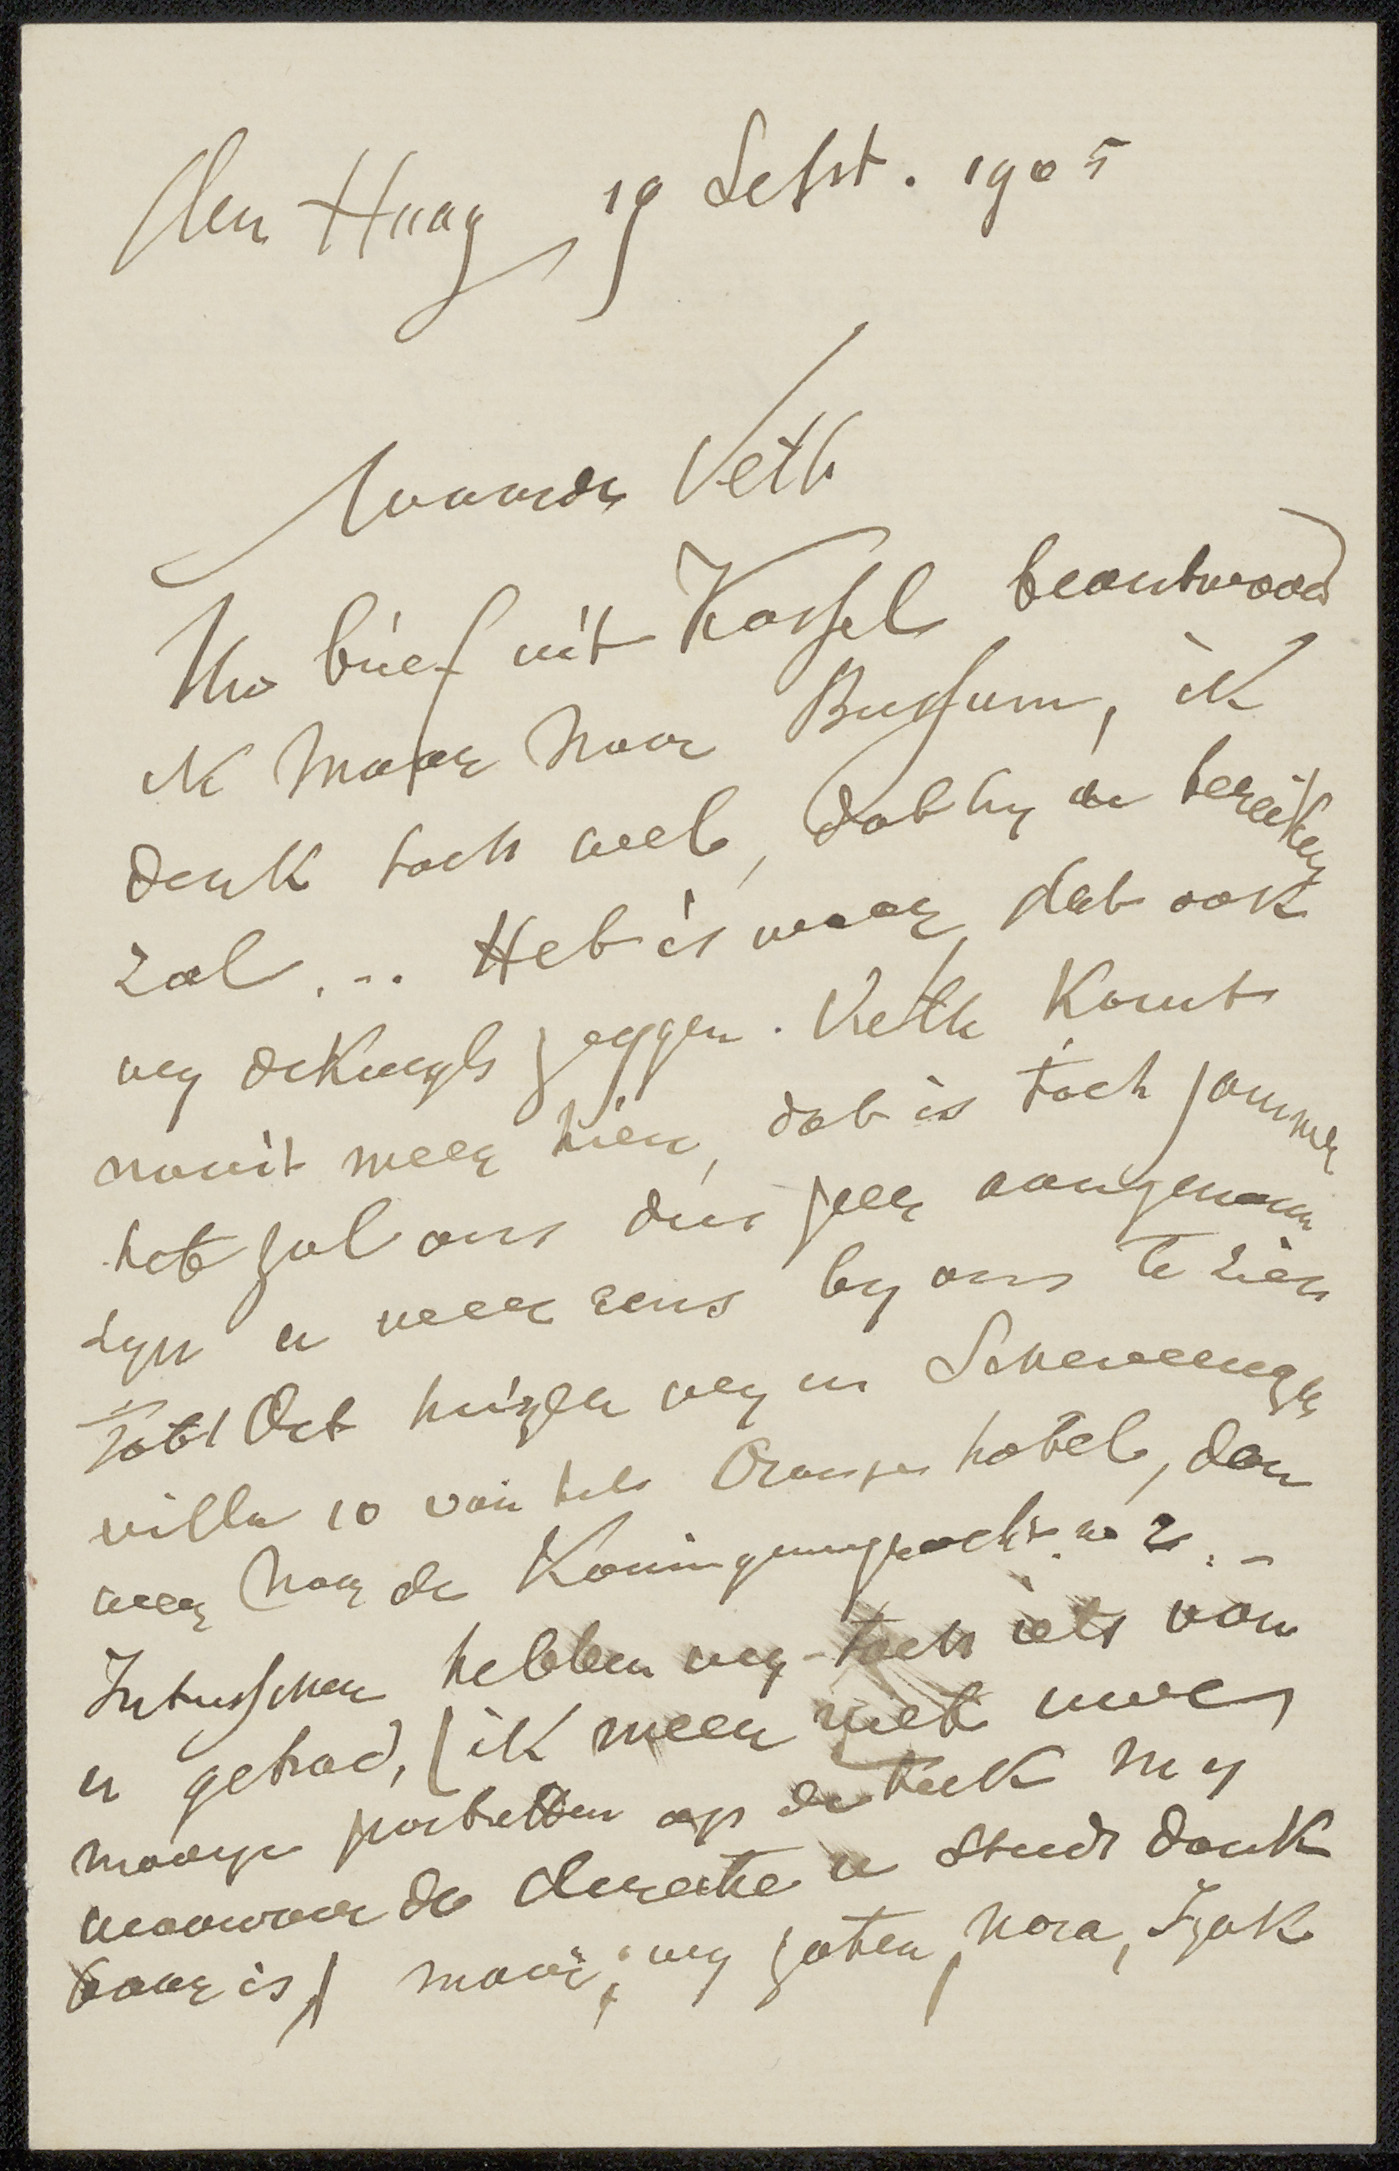 den Haag, 19 Sept. 1905
Waarde Veth
Uw brief uit Kassel beantwoord
ik maar naar Bussum, ik
denk toch wel, dat hy u bereiken
zal ... Het is waar, dat ook
wy dikwyls zeggen. Veth komt
nooit meer hier, dat is toch jammer
het zal ons dus zeer aangenaam
zyn u weer eens by ons te zien
tot 1 Oct huizen wy in Scheveningen
villa 10 van het Oranje hotel, dan
weer naar de Koninginnegracht no 2. -
Intusschen hebben wy toch iets van
u gehad, (ik meen niet uwe
mooye portretten op de tent. my
waarvoor de directie u steeds dank
baar is) maar; wy zaten, Nora, Izak